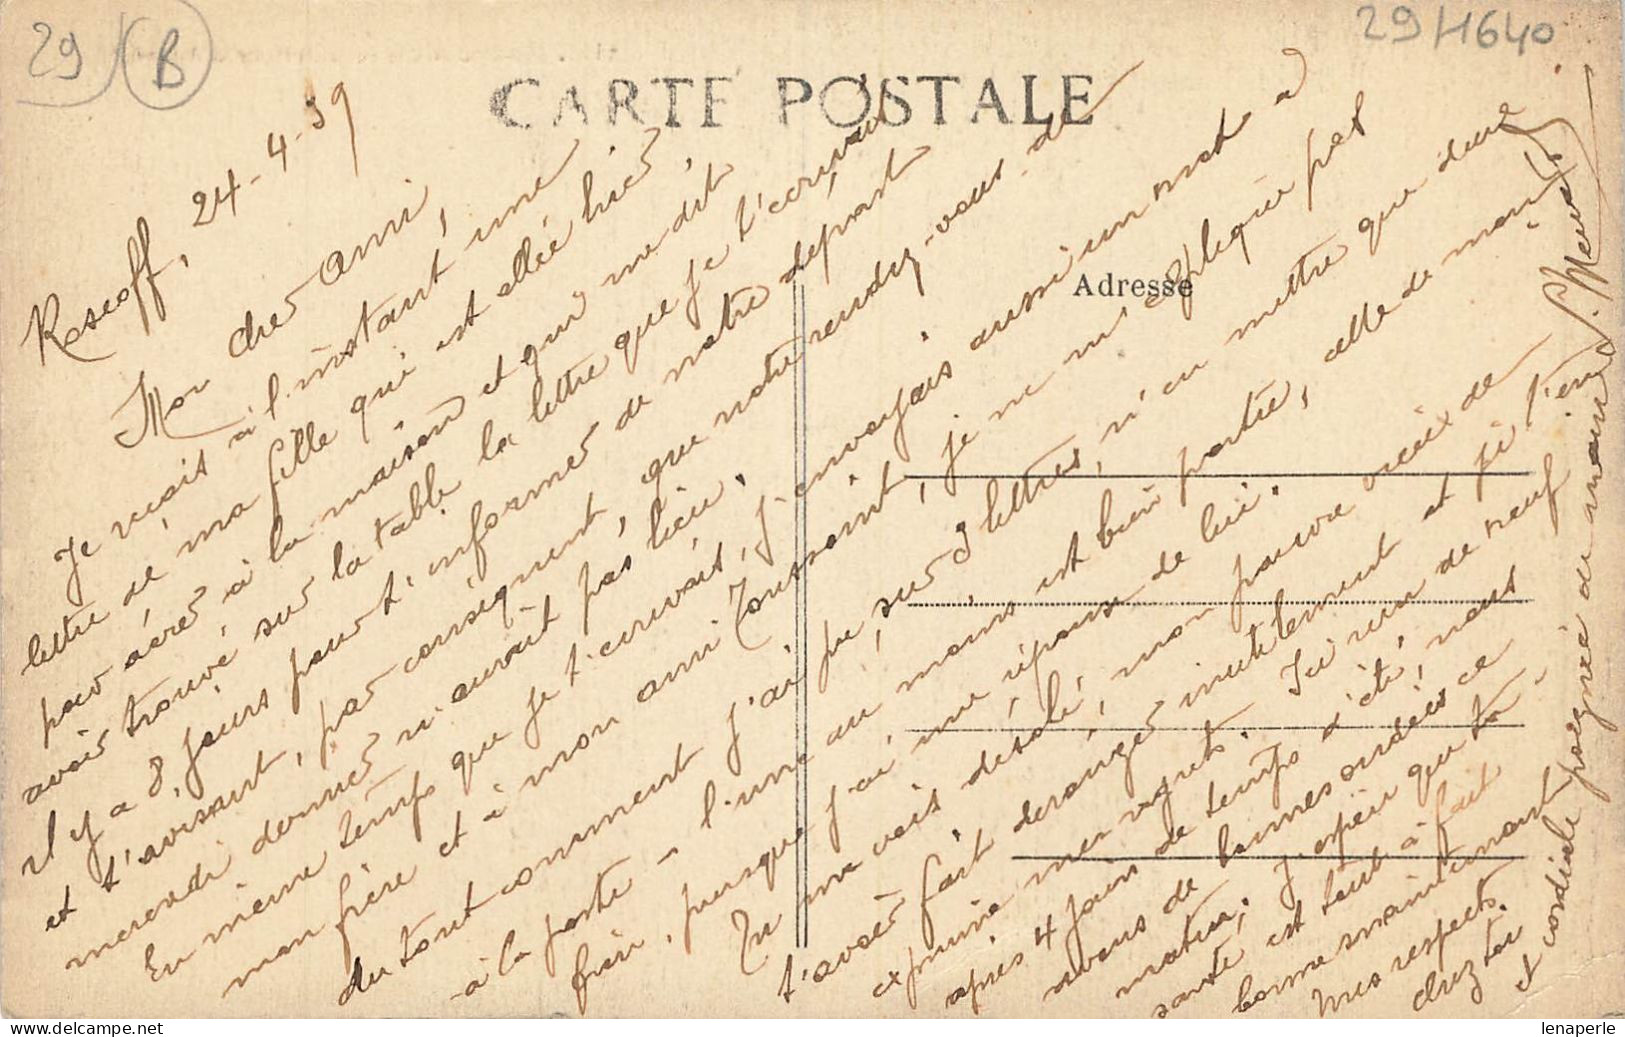 29 B
29H640
CARTE POSTALE
Adresse
Roscoff, 24-4-39
Mon cher ami,
Je reçois à l'instant une
lettre de ma fille qui est allée hier
pour aérer à la maison et qui me dit
avoir trouvé sur la table la lettre que je t'écrivais
il y a 8 jours pour t'informer de notre départ
et t'avisant, par conséquent, que notre rendez-vous de
mercredi dernier n'aurait pas lieu.
En même temps que je t'écrivais, j'envoyais aussi un mot à
mon frère et à mon ami Toussaint, je ne m'explique pas
du tout comment j'ai pu, sur 3 lettres, n'en mettre que deux
à la poste - l'une au moins est bien partie, celle de mon
frère, puisque j'ai une réponse de lui.
Tu me vois désolé, mon pauvre vieux de
t'avoir fait déranger inutilement et je t'en
exprime mes regrets. Ici rien de neuf
après 4 jours de temps d'été, nous
avons de bonnes ondées ce
matin, j'espère que ta
santé est tout à fait
bonne maintenant
Mes respects
chez toi
et cordiale poignée de mains